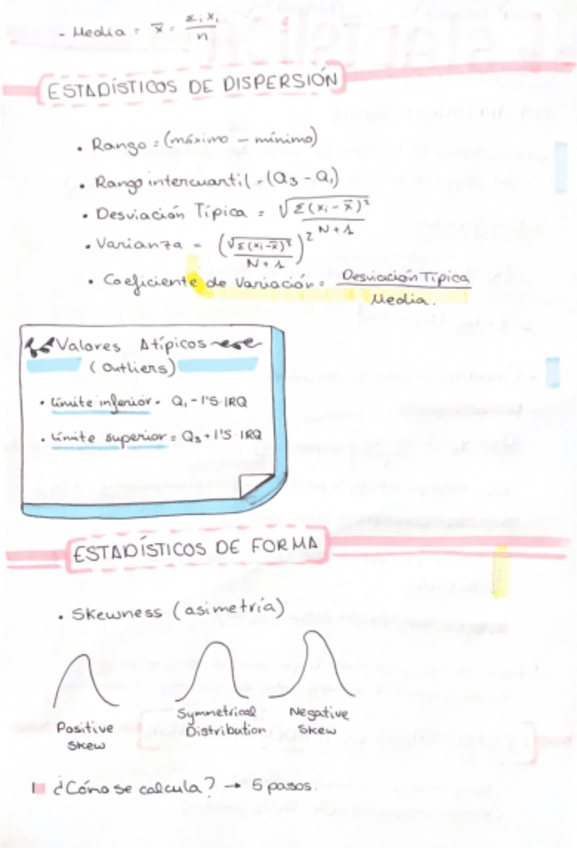 - Media = x̄ = Σ i xi / n
ESTADÍSTICOS DE DISPERSIÓN
• Rango = (máximo - mínimo)
• Rango intercuartil = (Q3 - Q1)
• Desviación Típica = √Σ(xi - x̄)² / N+1
• Varianza = (√Σ(xi-x̄)² / N+1)²
• Coeficiente de Variación = Desviación Típica / Media.
Valores Atípicos
(Outliers)
• Límite inferior = Q1 - 1'5·IRQ
• Límite superior = Q3 + 1'5·IRQ
ESTADÍSTICOS DE FORMA
• Skewness (asimetría)
Positive Skew
Symmetrical Distribution
Negative Skew
¿Cómo se calcula? → 5 pasos.